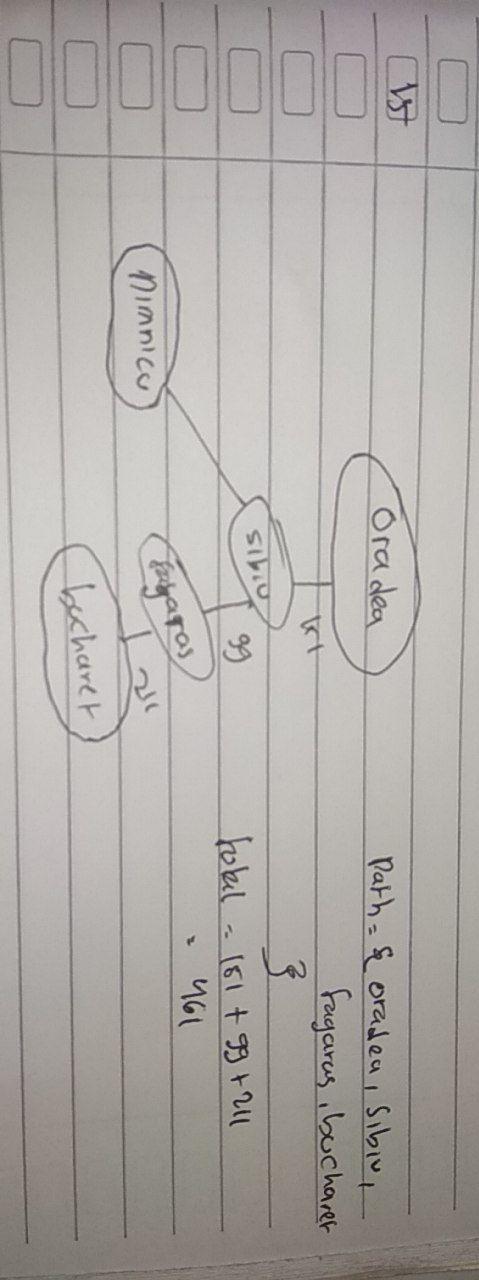 1st
Oradea
151
sibiu
Rimnicu
99
fagaras
211
bucharet
Path = { oradea, Sibiu,
fagaras, bucharet
}
total = 151 + 99 + 211
= 461